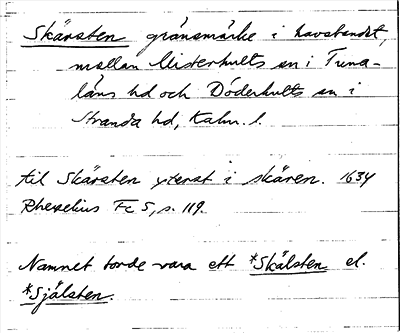 Skärsten gränsmärke i havsbandet,
mellan Misterhults sn i Tuna-
läns hd och Döderhults sn i
Stranda hd, Kalm. l.
til Skärsten yterst i skären. 1634
Rhezelius Fc 5, s. 119.
Namnet torde vara ett *Skälsten el.
*Själsten.